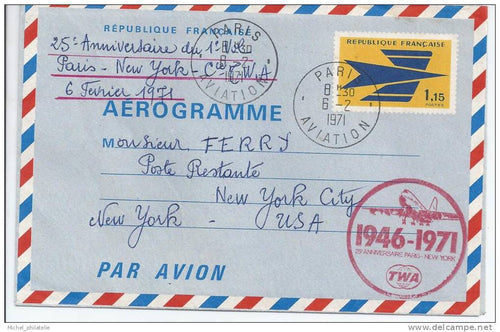 RÉPUBLIQUE FRANÇAISE
25e Anniversaire du 1er Vol
Paris - New York - Cie TWA
6 Fevrier 1971
PARIS
8H30
6-2
1971
AVIATION
RÉPUBLIQUE FRANÇAISE
1,15
POSTES
PARIS
8H30
6-2
1971
AVIATION
AÉROGRAMME
Monsieur FERRY
Poste Restante
New York City
New York - USA
1946-1971
25e ANNIVERSAIRE PARIS-NEW YORK
TWA
PAR AVION
Michel_philatelie